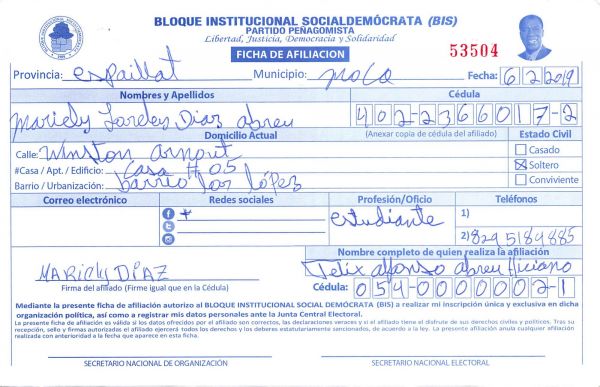 BLOQUE INSTITUCIONAL SOCIALDEMÓCRATA (BIS)
PARTIDO PEÑAGOMISTA
Libertad, Justicia, Democracia y Solidaridad
FICHA DE AFILIACION
53504
Provincia: espaillat Municipio: moca Fecha: 6/2/2019
Nombres y Apellidos Cédula
Mariely Diaz abreu 402-2366017-2
Domicilio Actual (Anexar copia de cédula del afiliado) Estado Civil
Calle: Winston arnout Casado
#Casa / Apt. / Edificio: Casa #05 Soltero
Barrio / Urbanización: barrio los lópez Conviviente
Correo electrónico Redes sociales Profesión/Oficio Teléfonos
estudiante 1)
2) 829 5184885
Nombre completo de quien realiza la afiliación
Felix alfonso abreu
MARIELY DÍAZ
Firma del afiliado (Firme igual que en la Cédula) Cédula: 054-0000002-1
Mediante la presente ficha de afiliación autorizo al BLOQUE INSTITUCIONAL SOCIAL DEMÓCRATA (BIS) a realizar mi inscripción única y exclusiva en dicha
organización política, así como a registrar mis datos personales ante la Junta Central Electoral.
La presente ficha de afiliación es válida si los datos ofrecidos por el afiliado son correctos, las declaraciones veraces y si el afiliado tiene el disfrute de sus derechos civiles y políticos. Tras su
recepción, sello y firmas autorizadas el afiliado ejercerá todos los derechos y los deberes estatutariamente sancionados, de acuerdo a la ley. La presente afiliación anula cualquier afiliación
realizada con anterioridad a la fecha que aparece en esta ficha.
SECRETARIO NACIONAL DE ORGANIZACIÓN SECRETARIO NACIONAL ELECTORAL